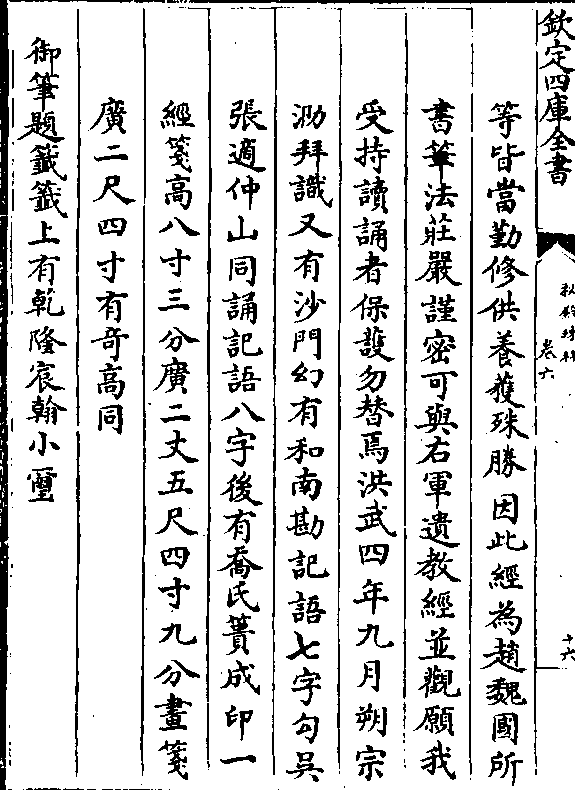 欽定四庫全書
卷六
十六
等皆當勤修供養獲殊勝因此經為趙魏國所
書筆法莊嚴謹密可與右軍遺教經並觀願我
受持讀誦者保護勿替焉洪武四年九月朔宗
泐拜識又有沙門幻有和南勘記語七字勾吳
張適仲山同誦記語八字後有喬氏簣成印一
經箋高八寸三分廣二丈五尺四寸九分畫箋
廣二尺四寸有奇高同
御筆題籤籤上有乾隆宸翰小璽